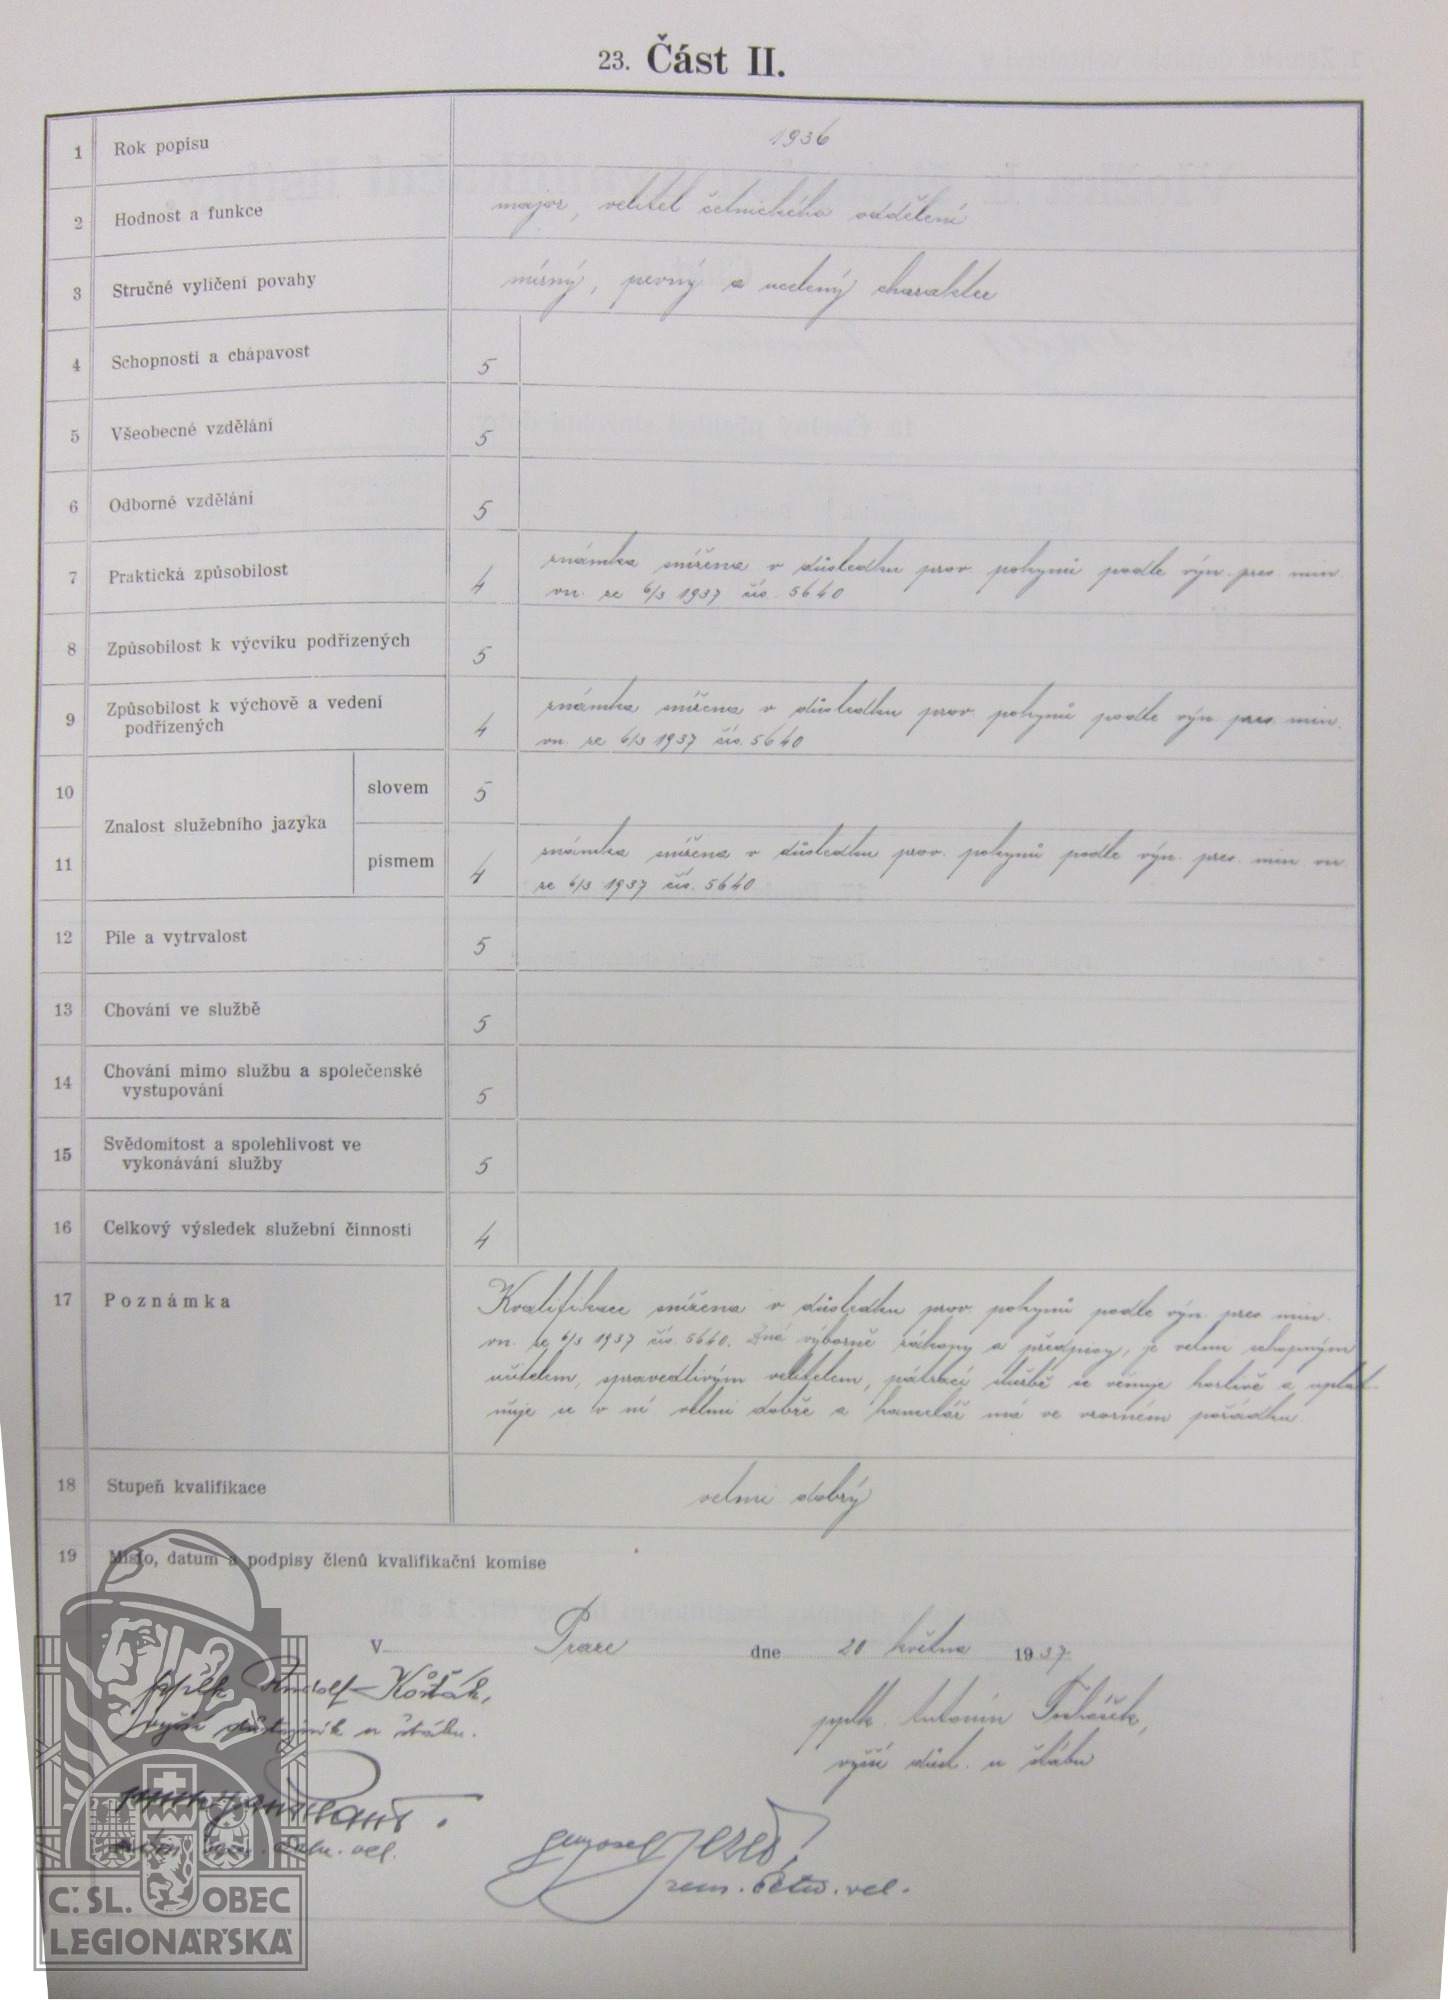 23. Část II.
1 Rok popisu 1936
2 Hodnost a funkce major, velitel četnického oddělení
3 Stručné vylíčení povahy mírný, pevný a ucelený charakter
4 Schopnosti a chápavost 5
5 Všeobecné vzdělání 5
6 Odborné vzdělání 5
7 Praktická způsobilost 4 známka snížena v důsledku prov. pokynů podle výn. pres. min.
vn. ze 6/3 1937 čís. 5640
8 Způsobilost k výcviku podřízených 5
9 Způsobilost k výchově a vedení
podřízených 4 známka snížena v důsledku prov. pokynů podle výn. pres. min.
vn. ze 6/3 1937 čís. 5640
10 Znalost služebního jazyka slovem 5
11 písmem 4 známka snížena v důsledku prov. pokynů podle výn. pres. min. vn.
ze 6/3 1937 čís. 5640
12 Píle a vytrvalost 5
13 Chování ve službě 5
14 Chování mimo službu a společenské
vystupování 5
15 Svědomitost a spolehlivost ve
vykonávání služby 5
16 Celkový výsledek služební činnosti 4
17 Poznámka Kvalifikace snížena v důsledku prov. pokynů podle výn. pres. min.
vn. ze 6/3 1937 čís. 5640. Zná výborně zákony a předpisy, je velmi schopným
učitelem, spravedlivým velitelem, pátrací službě se věnuje horlivě a uplat-
ňuje se v ní velmi dobře a kancelář má ve vzorném pořádku.
18 Stupeň kvalifikace velmi dobrý
19 Místo, datum a podpisy členů kvalifikační komise
V Praze dne 20 května 1937
pplk Rudolf Košťák,
vyšší důstojník u štábu.
pplk. Antonín
vyšší důst. u štábu
vel.
gen
zem. četn. vel.
Č.SL. OBEC
LEGIONÁŘSKÁ